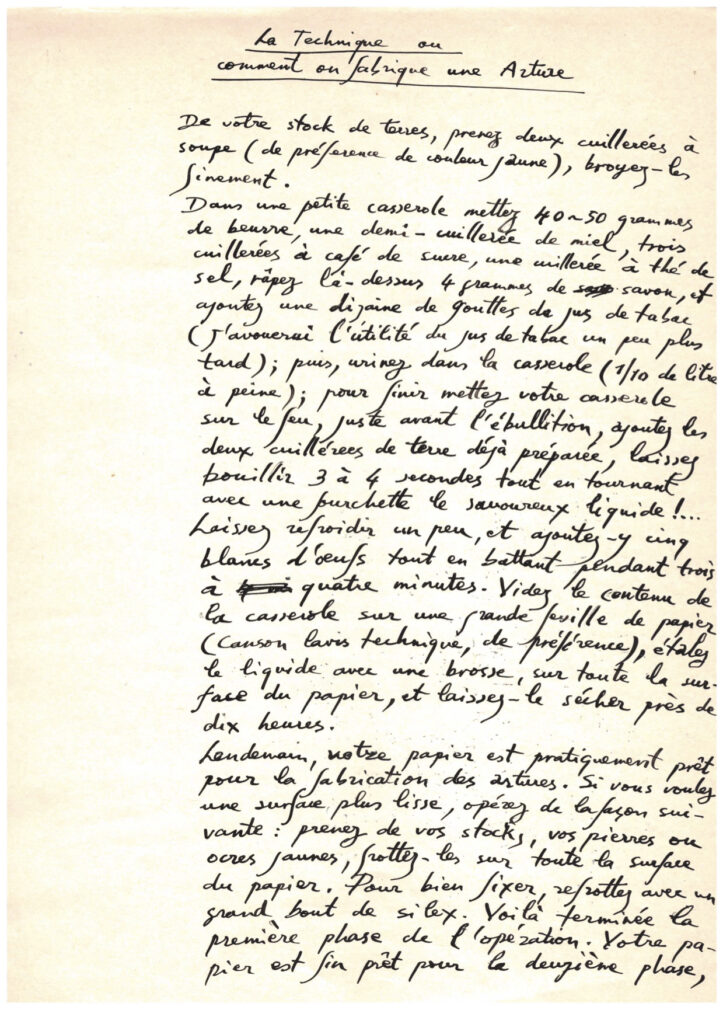 La Technique ou
comment on fabrique une Arture
De votre stock de terres, prenez deux cuillerées à
soupe (de préference de couleur jaune), broyez-les
finement.
Dans une petite casserole mettez 40~50 grammes
de beurre, une demi-cuillerée de miel, trois
cuillerées à café de sucre, une cuillerée à thé de
sel, râpez là-dessus 4 grammes de savon, et
ajoutez une dizaine de gouttes de jus de tabac
(j'avouerai l'utilité du jus de tabac un peu plus
tard); puis, urinez dans la casserole (1/10 de litre
à peine); pour finir mettez votre casserole
sur le feu, juste avant l'ébullition, ajoutez les
deux cuillérees de terre déjà préparée, laissez
bouillir 3 à 4 secondes tout en tournant
avec une fourchette le savoureux liquide!...
Laissez refroidir un peu, et ajoutez-y cinq
blancs d'œufs tout en battant pendant trois
à quatre minutes. Videz le contenu de
la casserole sur une grande feuille de papier
(Canson lavis technique, de préférence), étalez
le liquide avec une brosse, sur toute la sur-
face du papier, et laissez-le sécher près de
dix heures.
Lendemain, votre papier est pratiquement prêt
pour la fabrication des artures. Si vous voulez
une surface plus lisse, opérez de la façon sui-
vante: prenez de vos stocks, vos pierres ou
ocres jaunes, frottez-les sur toute la surface
du papier. Pour bien fixer, refrottez avec un
grand bout de silex. Voilà terminée la
première phase de l'opération. Votre pa-
pier est fin prêt pour la deuzième phase,